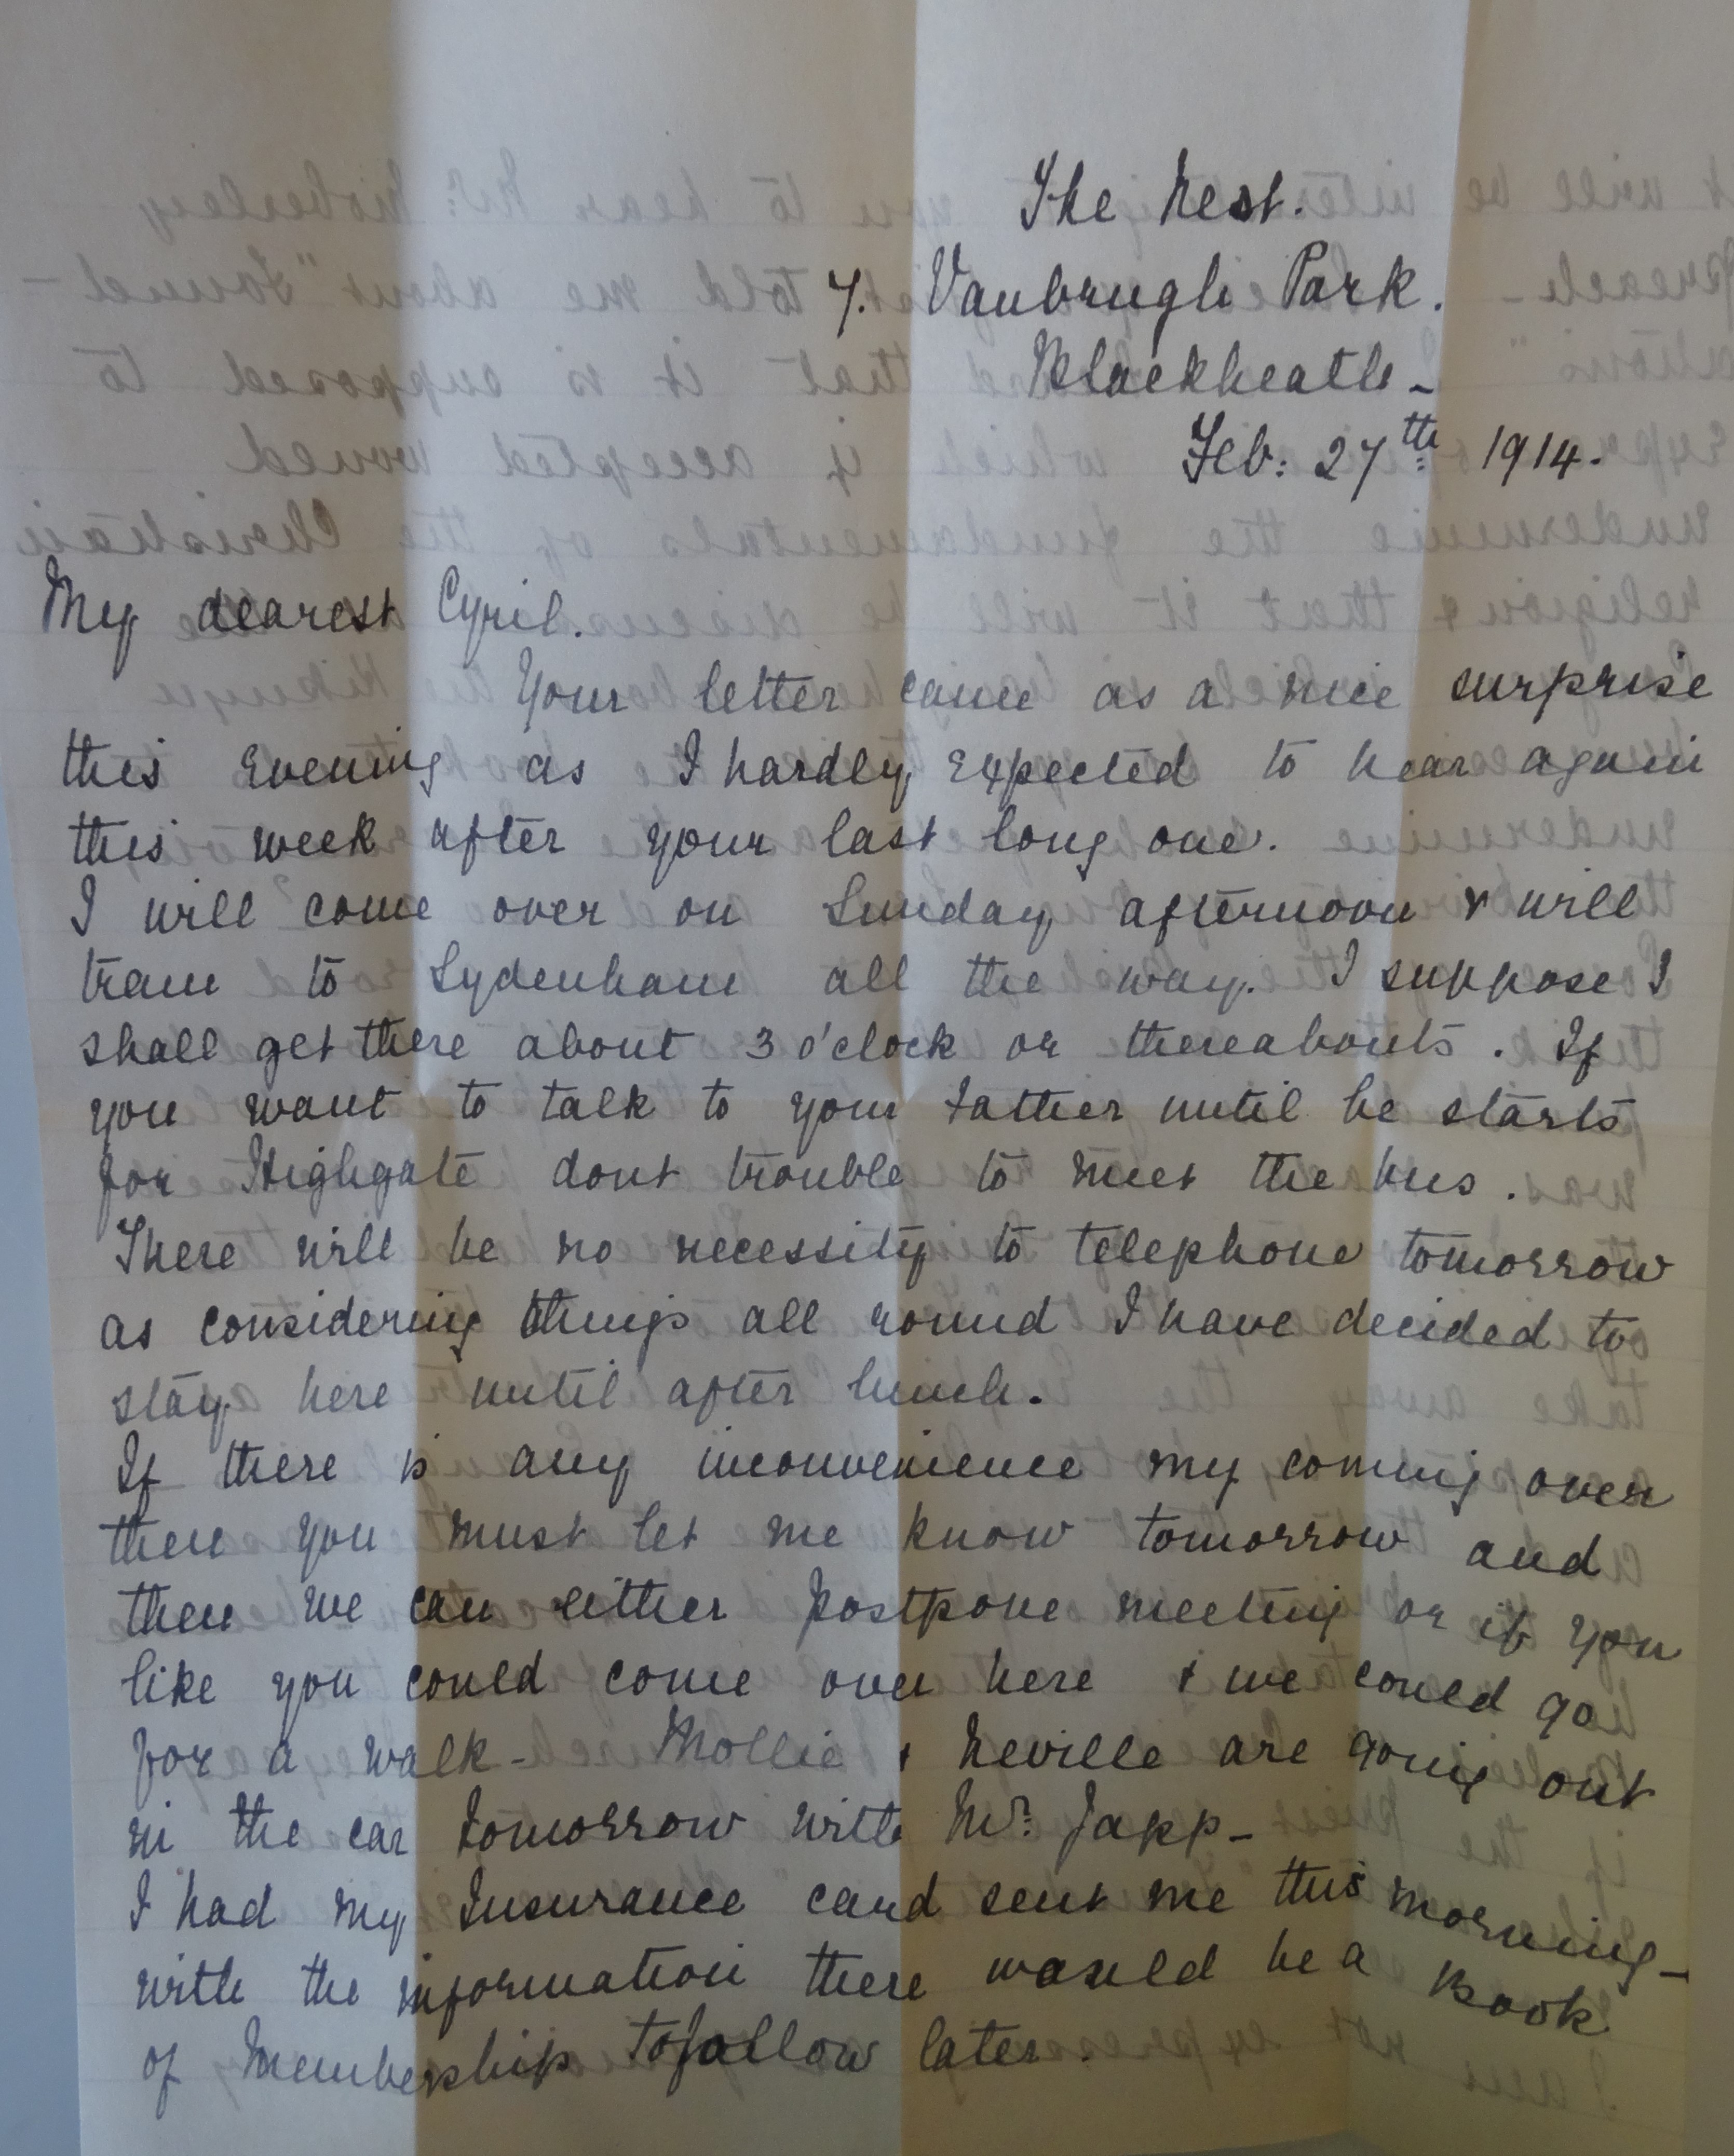 The Nest.
7. Vanbrugh Park.
Blackheath -
Feb: 27th 1914.
My dearest Cyril.
Your letter came as a nice surprise
this evening as I hardly expected to hear again
this week after your last long one.
I will come over on Sunday afternoon & will
tram to Sydenham all the way. I suppose I
shall get there about 3 o'clock or thereabouts. If
you want to talk to your Father until he starts
for Highgate dont trouble to meet the bus.
There will be no necessity to telephone tomorrow
as considering things all round I have decided to
stay here until after lunch.
If there is any inconvenience my coming over
then you must let me know tomorrow and
then we can either postpone meeting or if you
like you could come over here & we could go
for a walk - Mollie & Neville are going out
in the car tomorrow with Mr: Japp -
I had my Insurance card sent me this morning -
with the information there would be a Book
of Membership to follow later.